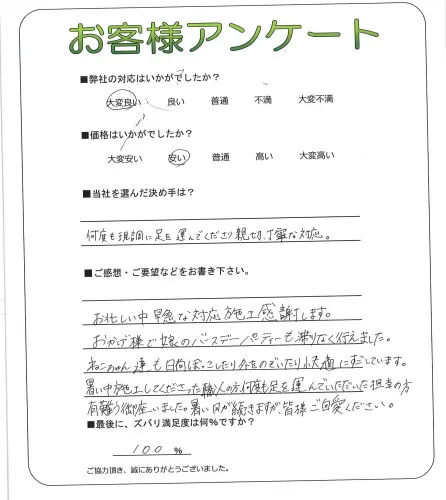 お客様アンケート
■弊社の対応はいかがでしたか？
大変良い 良い 普通 不満 大変不満
■価格はいかがでしたか？
大変安い 安い 普通 高い 大変高い
■当社を選んだ決め手は？
何度も現調に足を運んでくださり親切、丁寧な対応。
■ご感想・ご要望などをお書き下さい。
お忙しい中早急な対応施工感謝します。
おかげ様で娘のバースデーパーティーも滞りなく行えました。
ねこちゃん達も日向ぼっこしたり外をのぞいたり快適にすごしています。
暑い中施工してくださった職人の方何度も足を運んでいただいた担当の方
有難う御座いました。暑い日が続きますが、皆様ご自愛ください。
■最後に、ズバリ満足度は何％ですか？
100 %
ご協力頂き、誠にありがとうございました。